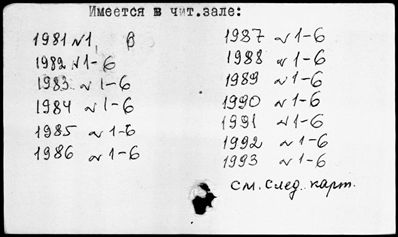 Имеется в чит.зале:
1981 №1, В
1982 №1-6
1983 № 1-6
1984 № 1-6
1985 № 1-6
1986 № 1-6
1987 № 1-6
1988 № 1-6
1989 № 1-6
1990 № 1-6
1991 № 1-6
1992 № 1-6
1993 № 1-6
см. след. карт.